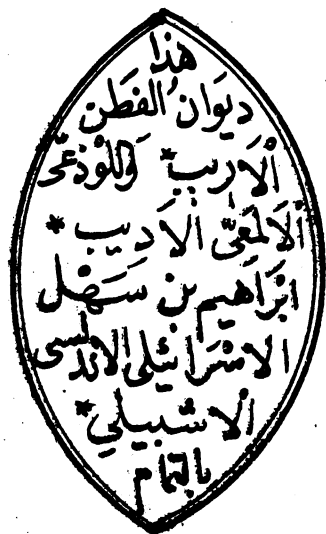 هذا
ديوان الفطن
الاريب * واللوذعى
الالمعى الاديب *
ابراهيم بن سهل
الاسرائيلى الاندلسى
الاشبيلي *
بالتمام